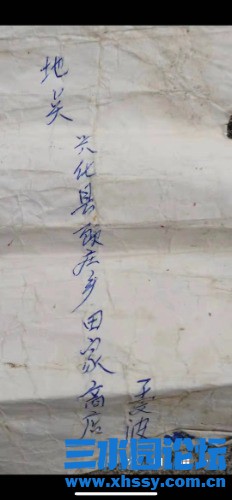 地
兴化县顾庄乡田家商店
波
三水园论坛
www.xhssy.com.cn